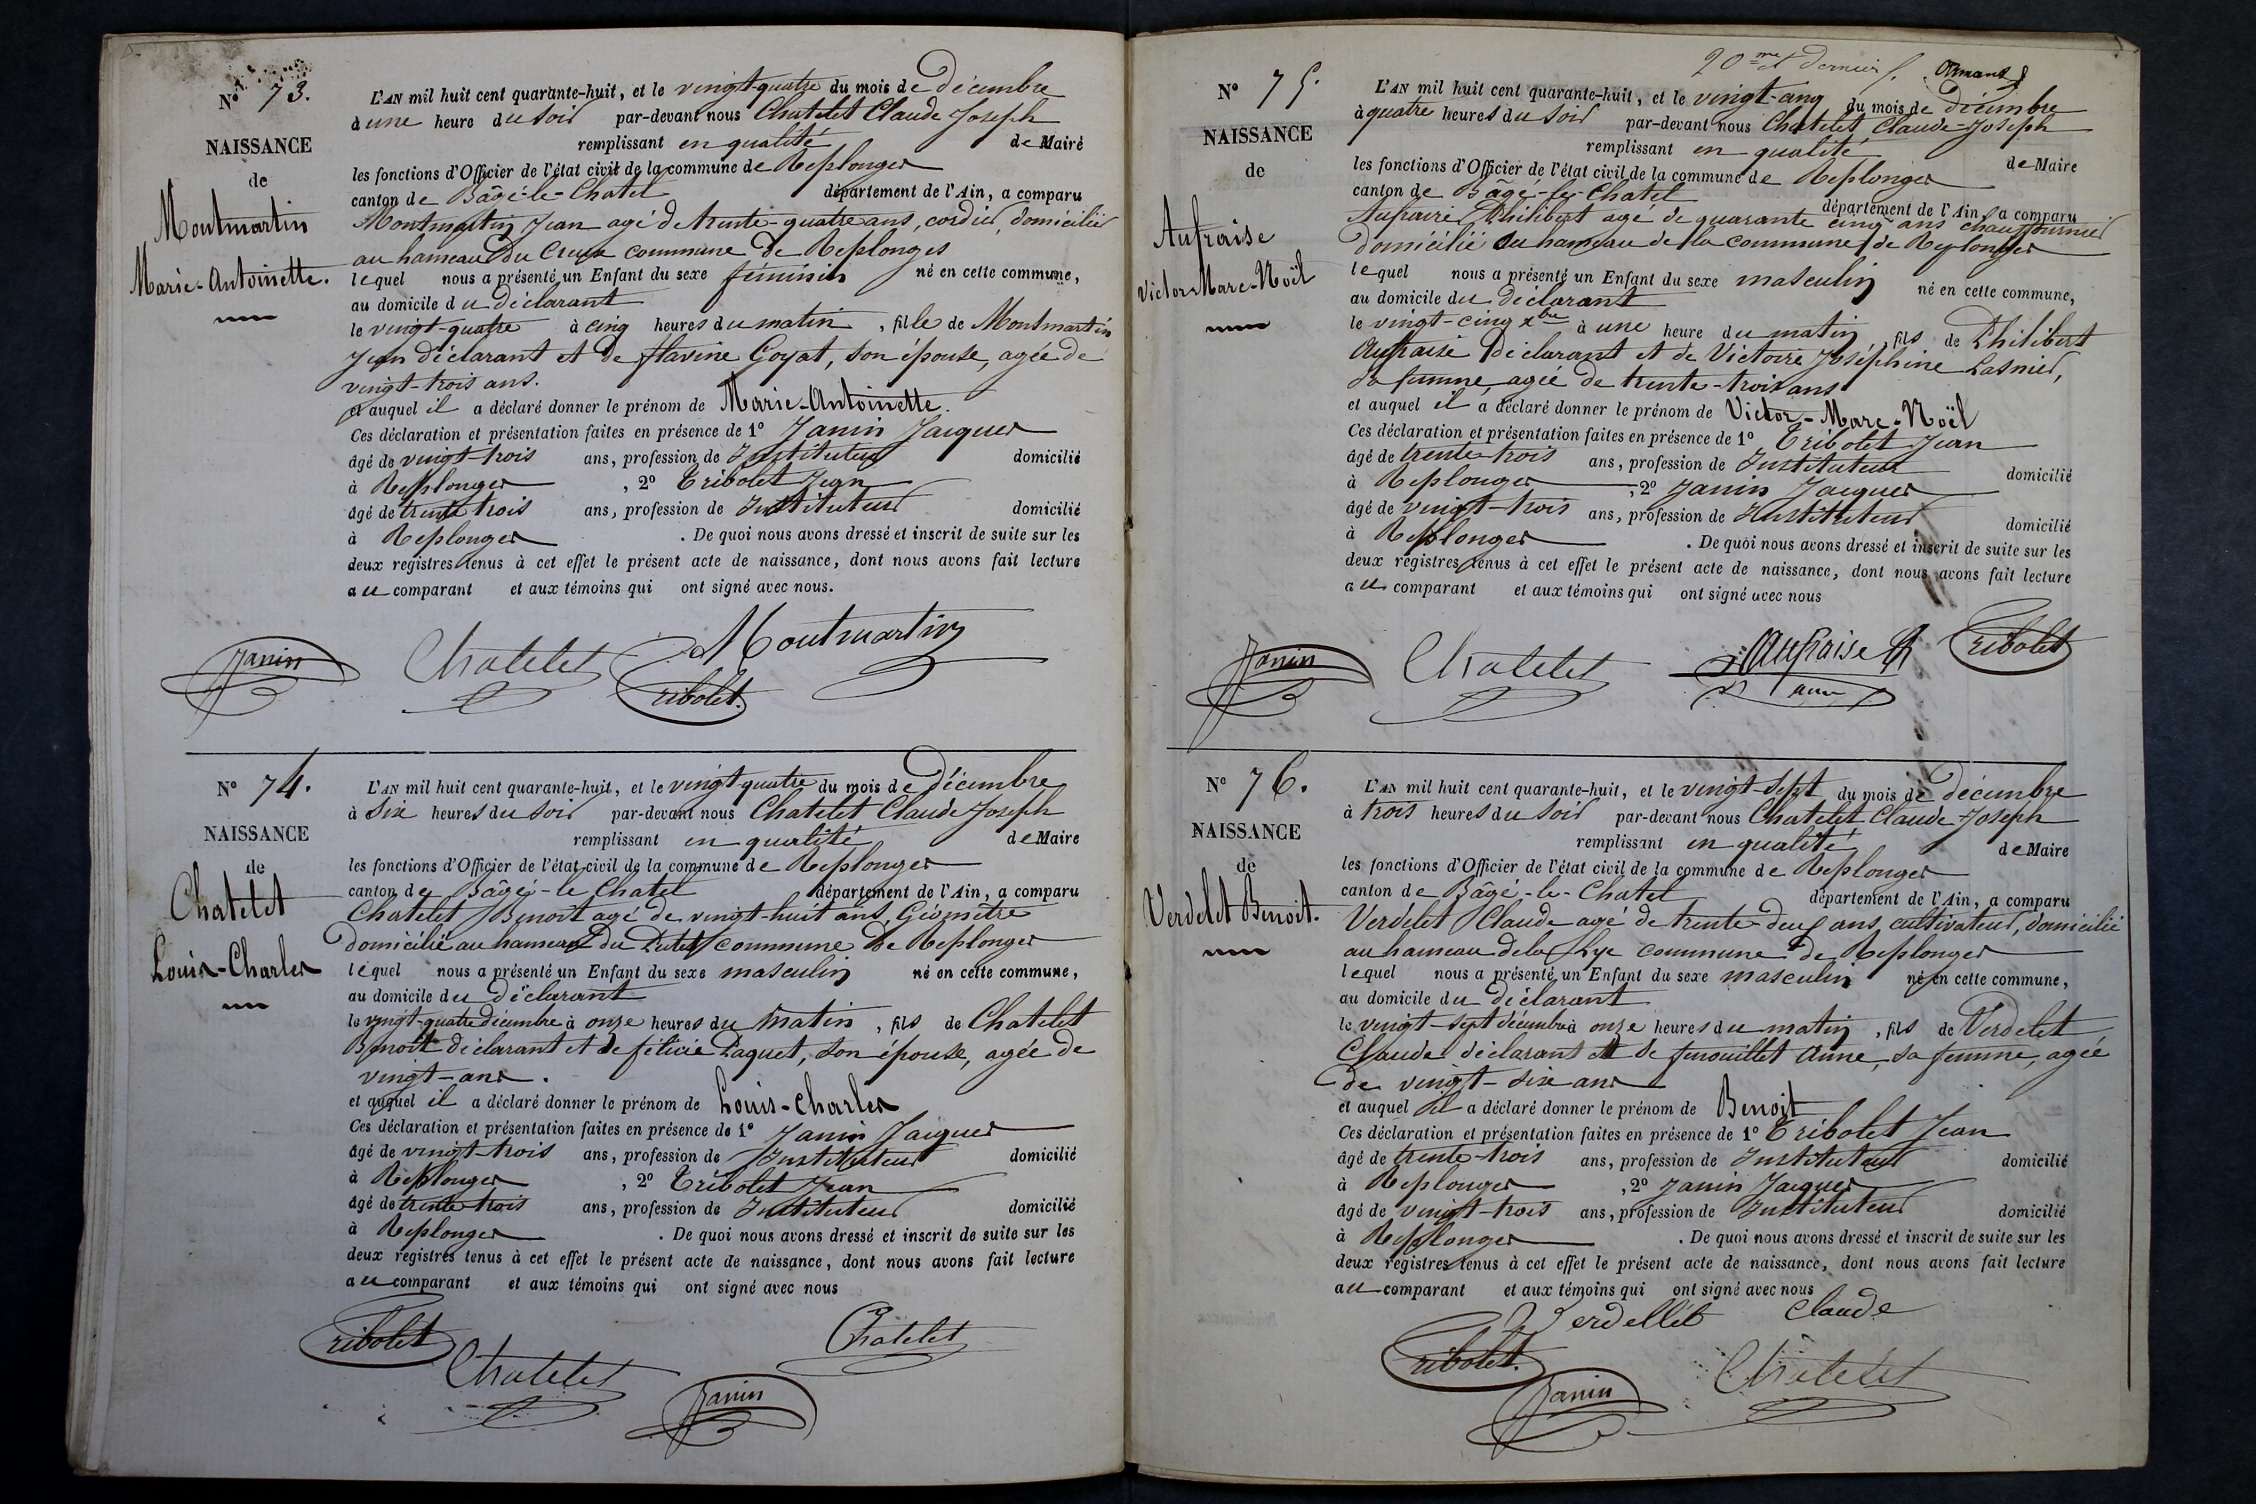 N° 73.
NAISSANCE
de
Montmartin
Marie-Antoinette.
L'AN mil huit cent quarante-huit, et le vingt-quatre du mois de Décembre
à une heure du soir par-devant nous Chatelet Claude Joseph
remplissant en qualité de Maire
les fonctions d'Officier de l'état civil de la commune de Replonges
canton de Bâgé-le-Chatel département de l'Ain, a comparu
Montmartin Jean agé de trente-quatre ans, cordier, domicilié
au hameau du Creux commune de Replonges
lequel nous a présenté un Enfant du sexe féminin né en cette commune,
au domicile du déclarant
le vingt-quatre à cinq heures du matin, fille de Montmartin
Jean déclarant et de flavine Goyat, son épouse, agée de
vingt-trois ans.
et auquel il a déclaré donner le prénom de Marie-Antoinette.
Ces déclaration et présentation faites en présence de 1° Janin Jacques
âgé de vingt-trois ans, profession de Instituteur domicilié
à Replonges, 2° Tribolet Jean
âgé de trente trois ans, profession de Instituteur domicilié
à Replonges. De quoi nous avons dressé et inscrit de suite sur les
deux registres tenus à cet effet le présent acte de naissance, dont nous avons fait lecture
au comparant et aux témoins qui ont signé avec nous.
Janin Chatelet Tribolet. Montmartin
N° 74.
NAISSANCE
de
Chatelet
Louis-Charles
L'AN mil huit cent quarante-huit, et le vingt-quatre du mois de Décembre
à Six heures du soir par-devant nous Chatelet Claude Joseph
remplissant en qualité de Maire
les fonctions d'Officier de l'état civil de la commune de Replonges
canton de Bâgé-le Chatel département de l'Ain, a comparu
Chatelet Benoît agé de vingt-huit ans, Géomètre
domicilié au hameau du commune de Replonges
lequel nous a présenté un Enfant du sexe masculin né en cette commune,
au domicile du déclarant
le vingt-quatre décembre à onze heures du matin, fils de Chatelet
Benoit déclarant et de félicie Paquet, son épouse, agée de
vingt-ans.
et auquel il a déclaré donner le prénom de Louis-Charles
Ces déclaration et présentation faites en présence de 1° Janin Jacques
âgé de vingt-trois ans, profession de Instituteur domicilié
à Replonges, 2° Tribolet Jean
âgé de trente-trois ans, profession de Instituteur domicilié
à Replonges. De quoi nous avons dressé et inscrit de suite sur les
deux registres tenus à cet effet le présent acte de naissance, dont nous avons fait lecture
au comparant et aux témoins qui ont signé avec nous
Tribolet Chatelet Janin Chatelet
20me et dernier f.
N° 75.
NAISSANCE
de
Aufraise
Victor-Marc-Noël
L'AN mil huit cent quarante-huit, et le vingt-cinq du mois de décembre
à quatre heures du soir par-devant nous Chatelet Claude-Joseph
remplissant en qualité de Maire
les fonctions d'Officier de l'état civil de la commune de Replonges
canton de Bâgé-le-Chatel département de l'Ain, a comparu
Aufraise Philibert agé de quarante cinq ans chaufournier
domicilié au hameau de la commune de Replonges
lequel nous a présenté un Enfant du sexe masculin né en cette commune,
au domicile du déclarant
le vingt-cinq xbre à une heure du matin, fils de Philibert
Aufraise déclarant et de Victoire Joséphine Lasnier,
sa femme, agée de trente-trois ans
et auquel il a déclaré donner le prénom de Victor-Marc-Noël
Ces déclaration et présentation faites en présence de 1° Tribolet Jean
âgé de trente-trois ans, profession de Instituteur domicilié
à Replonges, 2° Janin Jacques
âgé de vingt-trois ans, profession de Instituteur domicilié
à Replonges. De quoi nous avons dressé et inscrit de suite sur les
deux registres tenus à cet effet le présent acte de naissance, dont nous avons fait lecture
au comparant et aux témoins qui ont signé avec nous
Janin Chatelet Aufraise Tribolet
N° 76.
NAISSANCE
de
Verdelet Benoit.
L'AN mil huit cent quarante-huit, et le vingt-sept du mois de décembre
à trois heures du soir par-devant nous Chatelet Claude-Joseph
remplissant en qualité de Maire
les fonctions d'Officier de l'état civil de la commune de Replonges
canton de Bâgé-le-Chatel département de l'Ain, a comparu
Verdelet Claude agé de trente-deux ans, cultivateur, domicilié
au hameau de la commune de Replonges
lequel nous a présenté un Enfant du sexe masculin né en cette commune,
au domicile du déclarant
le vingt-sept décembre à onze heures du matin, fils de Verdelet
Claude déclarant et de fenouillet Anne, sa femme, agée
de vingt-six ans
et auquel il a déclaré donner le prénom de Benoit
Ces déclaration et présentation faites en présence de 1° Tribolet Jean
âgé de trente-trois ans, profession de Instituteur domicilié
à Replonges, 2° Janin Jacques
âgé de vingt-trois ans, profession de Instituteur domicilié
à Replonges. De quoi nous avons dressé et inscrit de suite sur les
deux registres tenus à cet effet le présent acte de naissance, dont nous avons fait lecture
au comparant et aux témoins qui ont signé avec nous
Verdellet Claude
Tribolet. Janin Chatelet